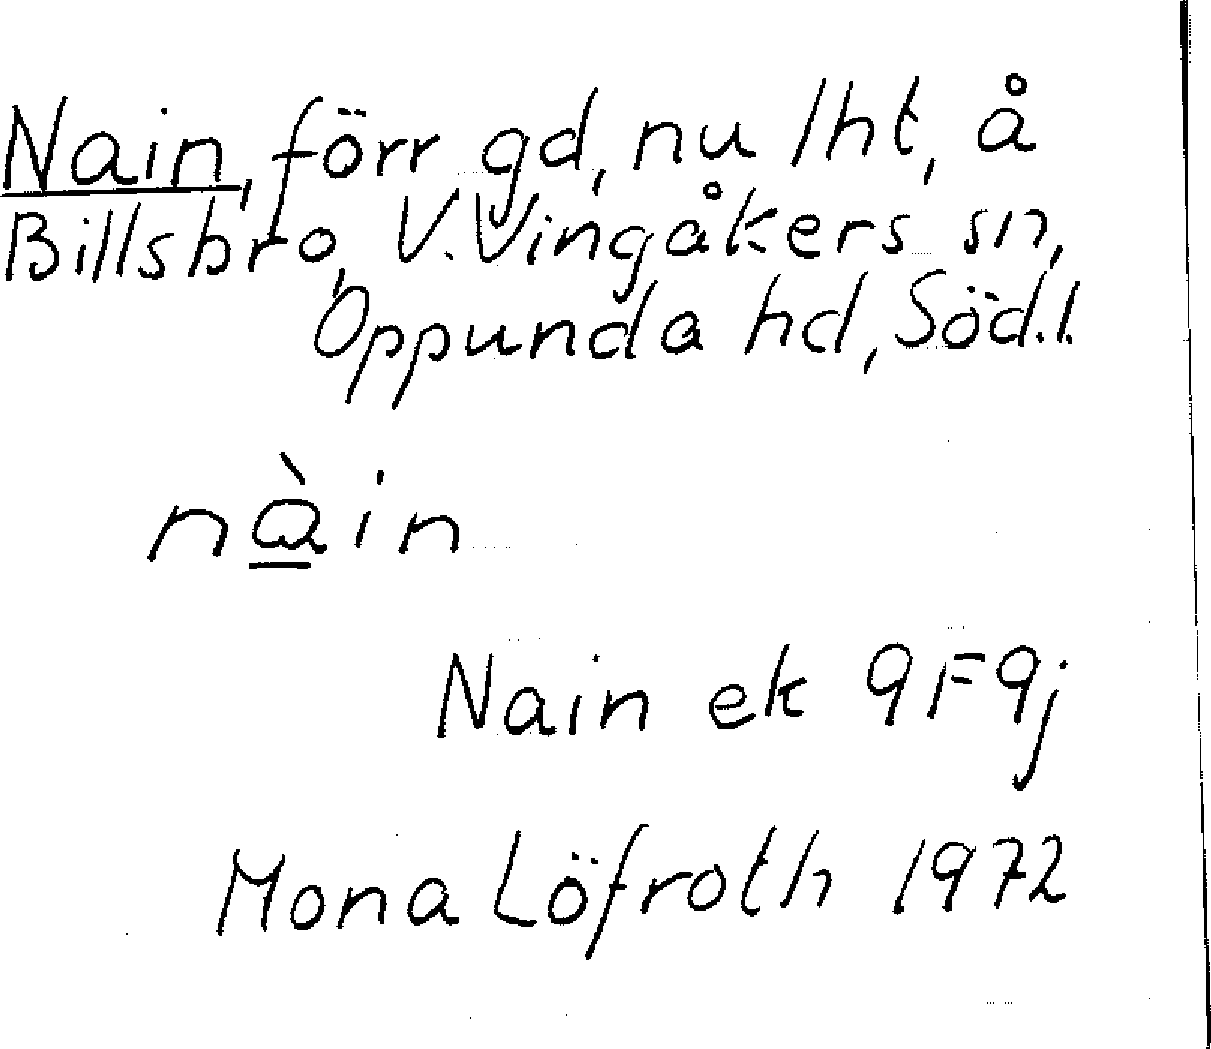 Nain, förr gd, nu lht, å
Billsbro, V. Vingåkers sn,
Oppunda hd, Söd.l.
nàin
Nain ek 9F9j
Mona Löfroth 1972